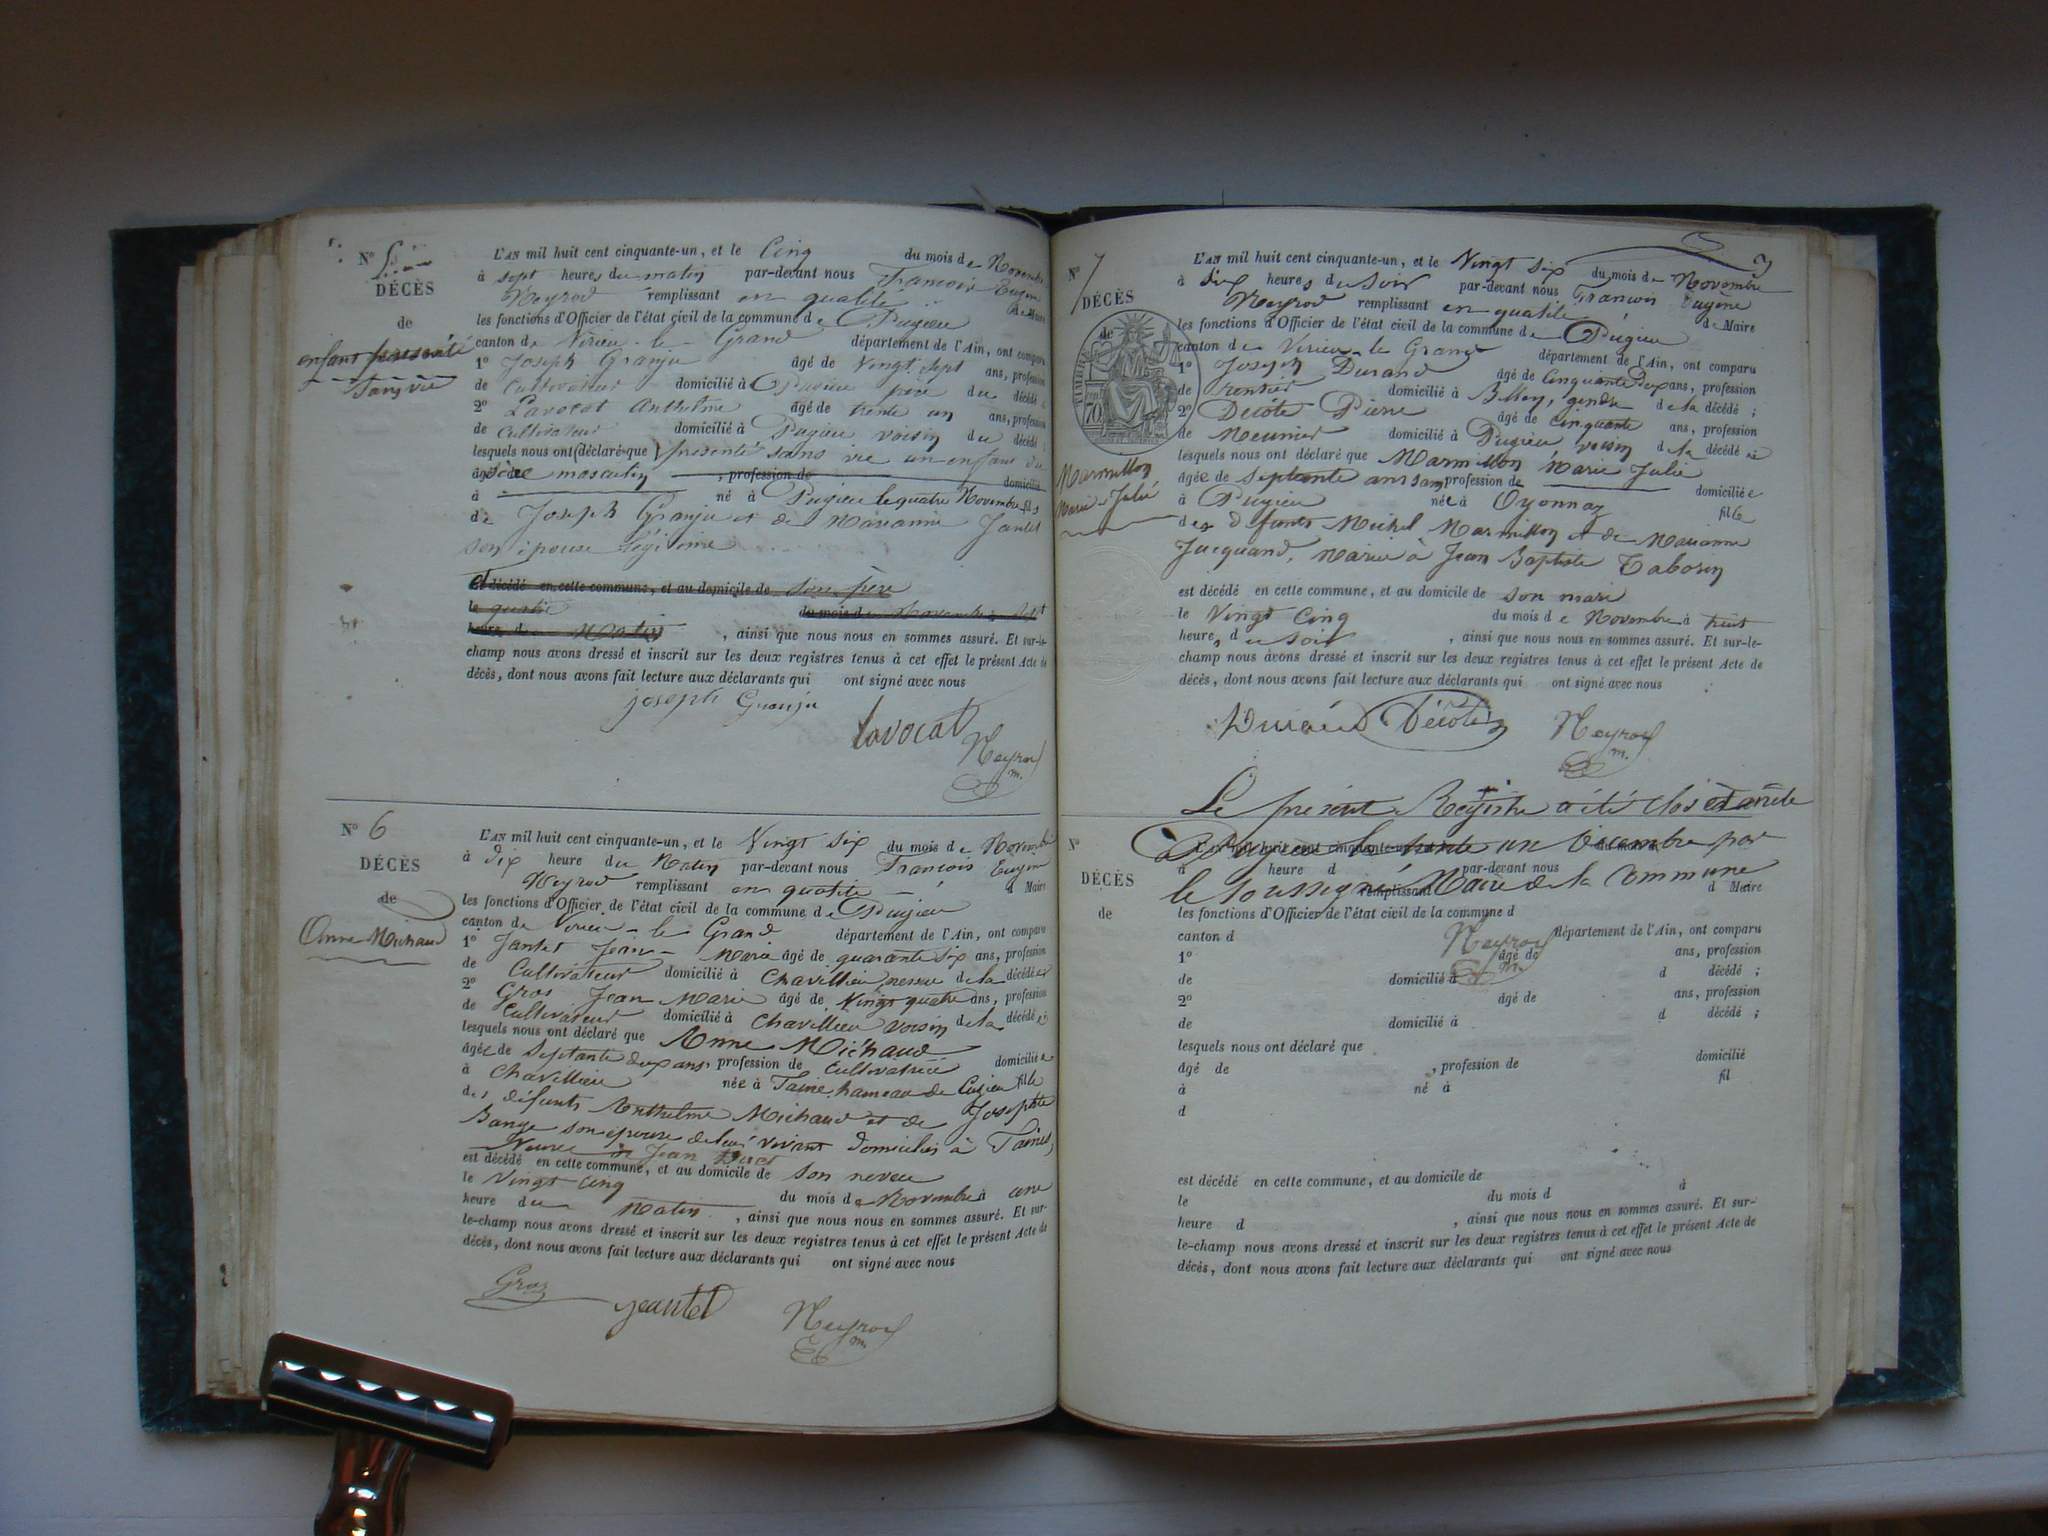 N° 5
DÉCÈS
de
enfant présenté
sans vie
L'AN mil huit cent cinquante-un, et le Cinq du mois de Novembre
à sept heures du matin par-devant nous François Eugène
Neyrod remplissant en qualité de Maire
les fonctions d'Officier de l'état civil de la commune de Pugieu
canton de Virieu-le-Grand département de l'Ain, ont comparu
1° Joseph Granju âgé de Vingt sept ans, profession
de Cultivateur domicilié à Pugieu père du décédé
2° Lavocat Anthelme âgé de trente un ans, profession
de Cultivateur domicilié à Pugieu voisin du décédé
lesquels nous ont (déclaré que) présenté sans vie un enfant du
âgé de sexe masculin, profession de domicilié
à né à Pugieu le quatre Novembre, fils
de Joseph Granju et de Marianne Jantet
son épouse légitime
est décédé en cette commune, et au domicile de son père
le quatre du mois de Novembre à sept
heures d Matin, ainsi que nous nous en sommes assuré. Et sur-le-
champ nous avons dressé et inscrit sur les deux registres tenus à cet effet le présent Acte de
décès, dont nous avons fait lecture aux déclarants qui ont signé avec nous
joseph Granju
lavocat
Neyrod
m.
N° 6
DÉCÈS
de
Anne Michaud
L'AN mil huit cent cinquante-un, et le Vingt six du mois de Novembre
à dix heure du Matin par-devant nous François Eugène
Neyrod remplissant en qualité d Maire
les fonctions d'Officier de l'état civil de la commune de Pugieu
canton de Virieu-le-Grand département de l'Ain, ont comparu
1° Jantet Jean-Marie âgé de quarante six ans, profession
de Cultivateur domicilié à Chavillieu neveu de la décédée
2° Gros Jean Marie âgé de Vingt quatre ans, profession
de Cultivateur domicilié à Chavillieu voisin de la décédée
lesquels nous ont déclaré que Anne Michaud
âgée de septante deux ans, profession de Cultivatrice domiciliée
à Chavillieu née à hameau de Cuzieu fille
des défunts Anthelme Michaud et de Josephte
Bange son épouse de leur vivant domiciliés à
Veuve de Jean
est décédé en cette commune, et au domicile de son neveu
le Vingt cinq du mois de Novembre à une
heure du Matin, ainsi que nous nous en sommes assuré. Et sur-
le-champ nous avons dressé et inscrit sur les deux registres tenus à cet effet le présent Acte de
décès, dont nous avons fait lecture aux déclarants qui ont signé avec nous
Gros
jeantet
Neyrod
m.
N° 7
DÉCÈS
de
TIMBRE
70
Marmillon
Marie Julie
L'AN mil huit cent cinquante-un, et le Vingt six du mois de Novembre
à Six heures du Soir par-devant nous François Eugène
Neyrod remplissant en qualité de Maire
les fonctions d'Officier de l'état civil de la commune de Pugieu
canton de Virieu-le-Grand département de l'Ain, ont comparu
1° Joseph Durand âgé de Cinquante deux ans, profession
de rentier domicilié à Belley, gendre de la décédé ;
2° Décôte Pierre âgé de cinquante ans, profession
de Meunier domicilié à Pugieu voisin de la décédée
lesquels nous ont déclaré que Marmillon Marie Julie
âgée de septante ans sans profession de domiciliée
à Pugieu née à Oyonnaz fille
des défunts Michel Marmillon et de Marianne
Jacquand, Mariée à Jean Baptiste Taborin
est décédé en cette commune, et au domicile de son mari
le Vingt Cinq du mois de Novembre à huit
heures du Soir, ainsi que nous nous en sommes assuré. Et sur-le-
champ nous avons dressé et inscrit sur les deux registres tenus à cet effet le présent Acte de
décès, dont nous avons fait lecture aux déclarants qui ont signé avec nous
Durand Décôte Neyrod
m.
Le présent Registre a été clos et arrêté
à Pugieu le trente un Décembre par
le soussigné Maire de la Commune
Neyrod
m.
N°
DÉCÈS
de
L'AN mil huit cent cinquante-un, et le du mois d
à heure d par-devant nous
remplissant d Maire
les fonctions d'Officier de l'état civil de la commune d
canton d département de l'Ain, ont comparu
1° âgé de ans, profession
de domicilié à d décédé ;
2° âgé de ans, profession
de domicilié à d décédé ;
lesquels nous ont déclaré que
âgé de , profession de domicilié
à né à fil
d
est décédé en cette commune, et au domicile de
le du mois d à
heure d , ainsi que nous nous en sommes assuré. Et sur-
le-champ nous avons dressé et inscrit sur les deux registres tenus à cet effet le présent Acte de
décès, dont nous avons fait lecture aux déclarants qui ont signé avec nous